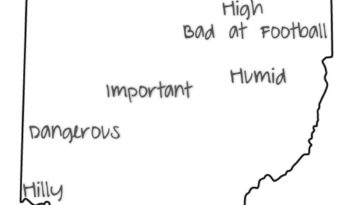 High
Bad at Football
Humid
Important
Dangerous
Hilly